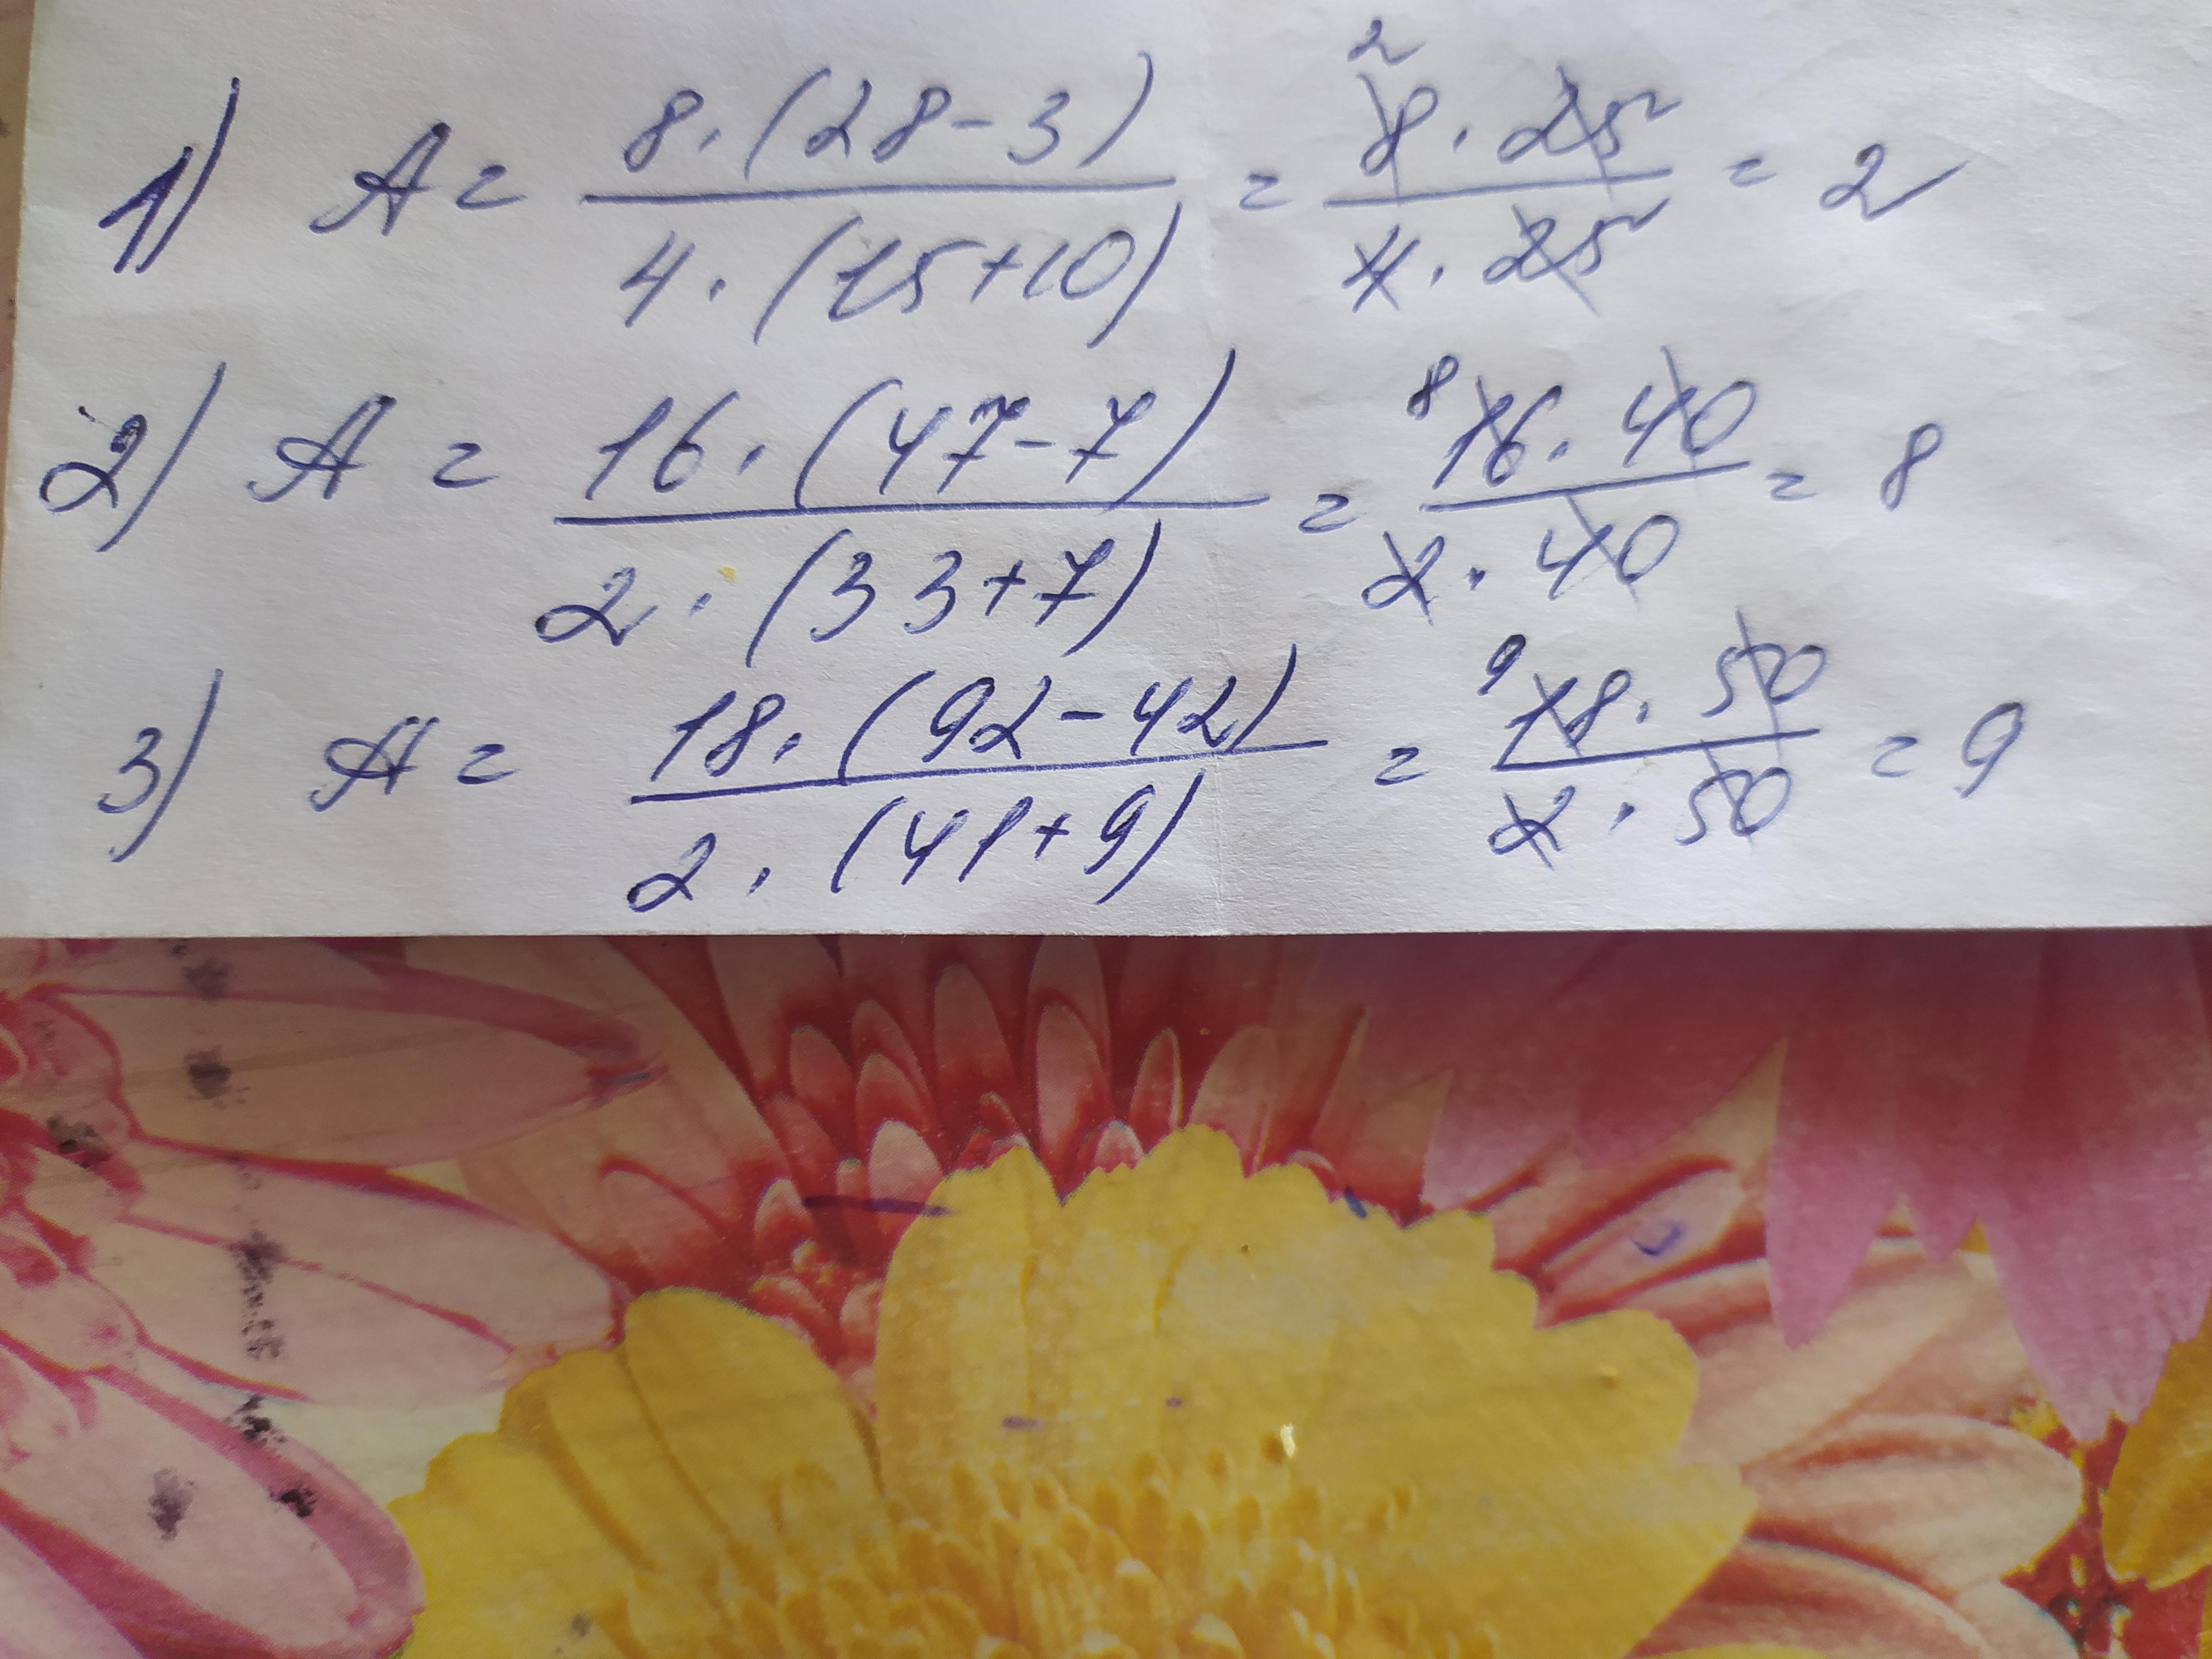 1) A = 8·(28-3) / 4·(15+10) = 2 8·25 / 4·25 = 2
2) A = 16·(47-7) / 2·(33+7) = 8 16·40 / 2·40 = 8
3) A = 18·(92-42) / 2·(41+9) = 9 18·50 / 2·50 = 9